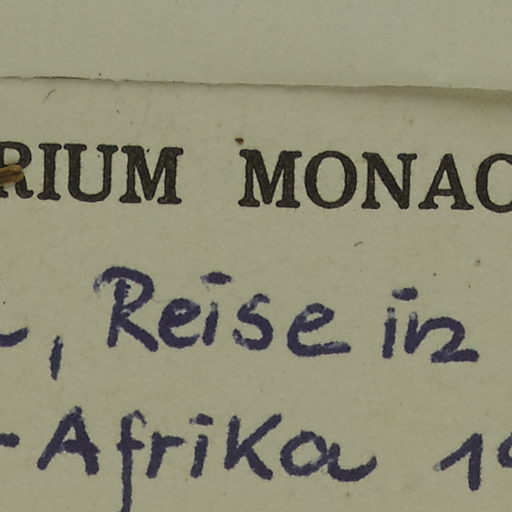 RIUM MONAC
, Reise in
-Afrika 19